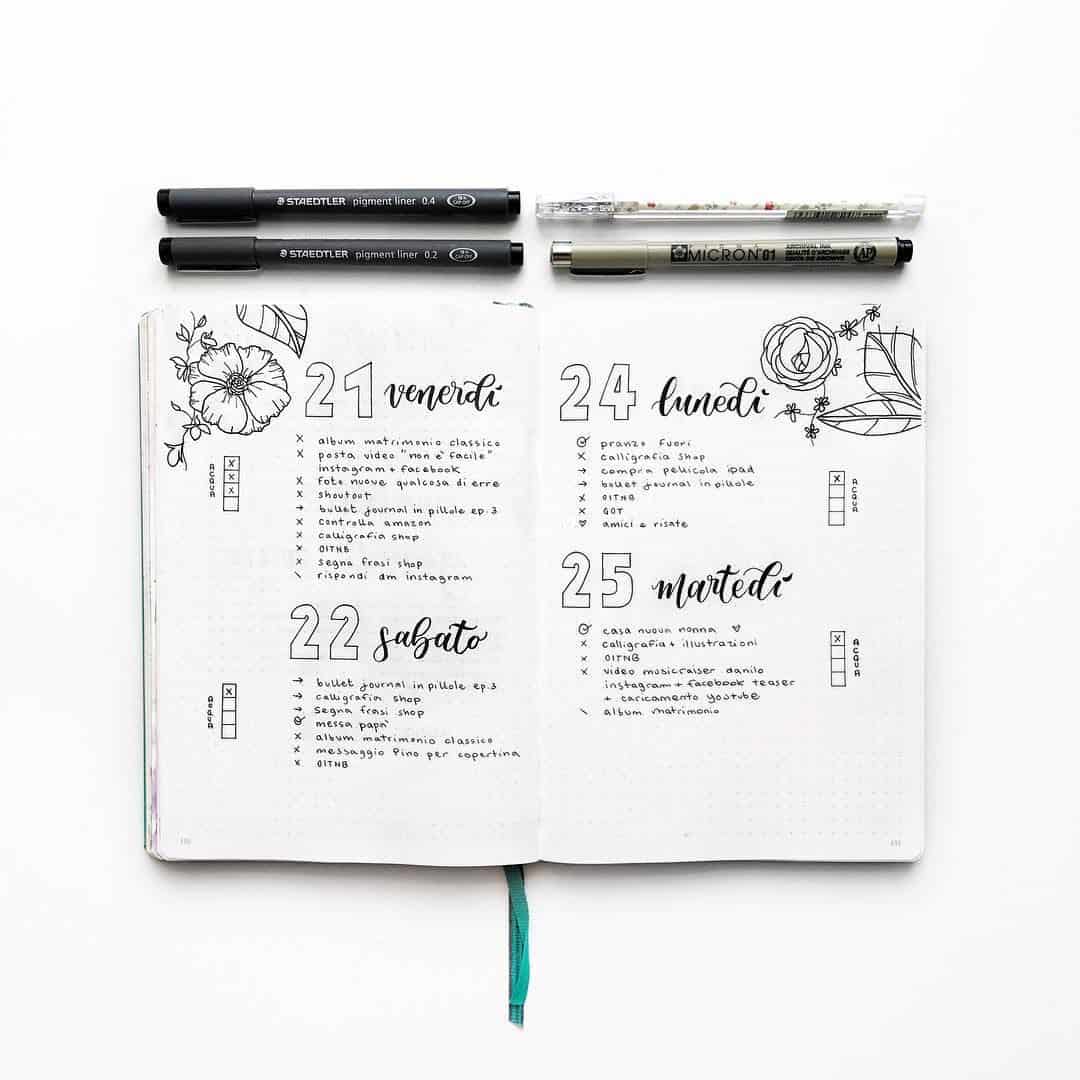 STAEDTLER pigment liner 0.4
STAEDTLER pigment liner 0.2
MICRON 01
ARCHIVAL INK
AP
21 venerdì
x album matrimonio classico
x posta video "non è facile"
instagram + facebook
x foto nuove qualcosa di erre
x shoutout
→ bullet journal in pillole ep.3
x controlla amazon
x calligrafia shop
x OITNB
x segna frasi shop
\ rispondi dm instagram
ACQUA
x
x
x
22 sabato
→ bullet journal in pillole ep.3
→ calligrafia shop
→ segna frasi shop
messa papà
x album matrimonio classico
x messaggio Pino per copertina
x OITNB
ACQUA
x
24 lunedì
pranzo fuori
x calligrafia shop
→ compra pellicola ipad
→ bullet journal in pillole
x OITNB
x GOT
♡ amici e risate
ACQUA
x
25 martedì
casa nuova nonna ♡
x calligrafia + illustrazioni
x OITNB
x video musicraiser danilo
instagram + facebook teaser
+ caricamento youtube
\ album matrimonio
ACQUA
x